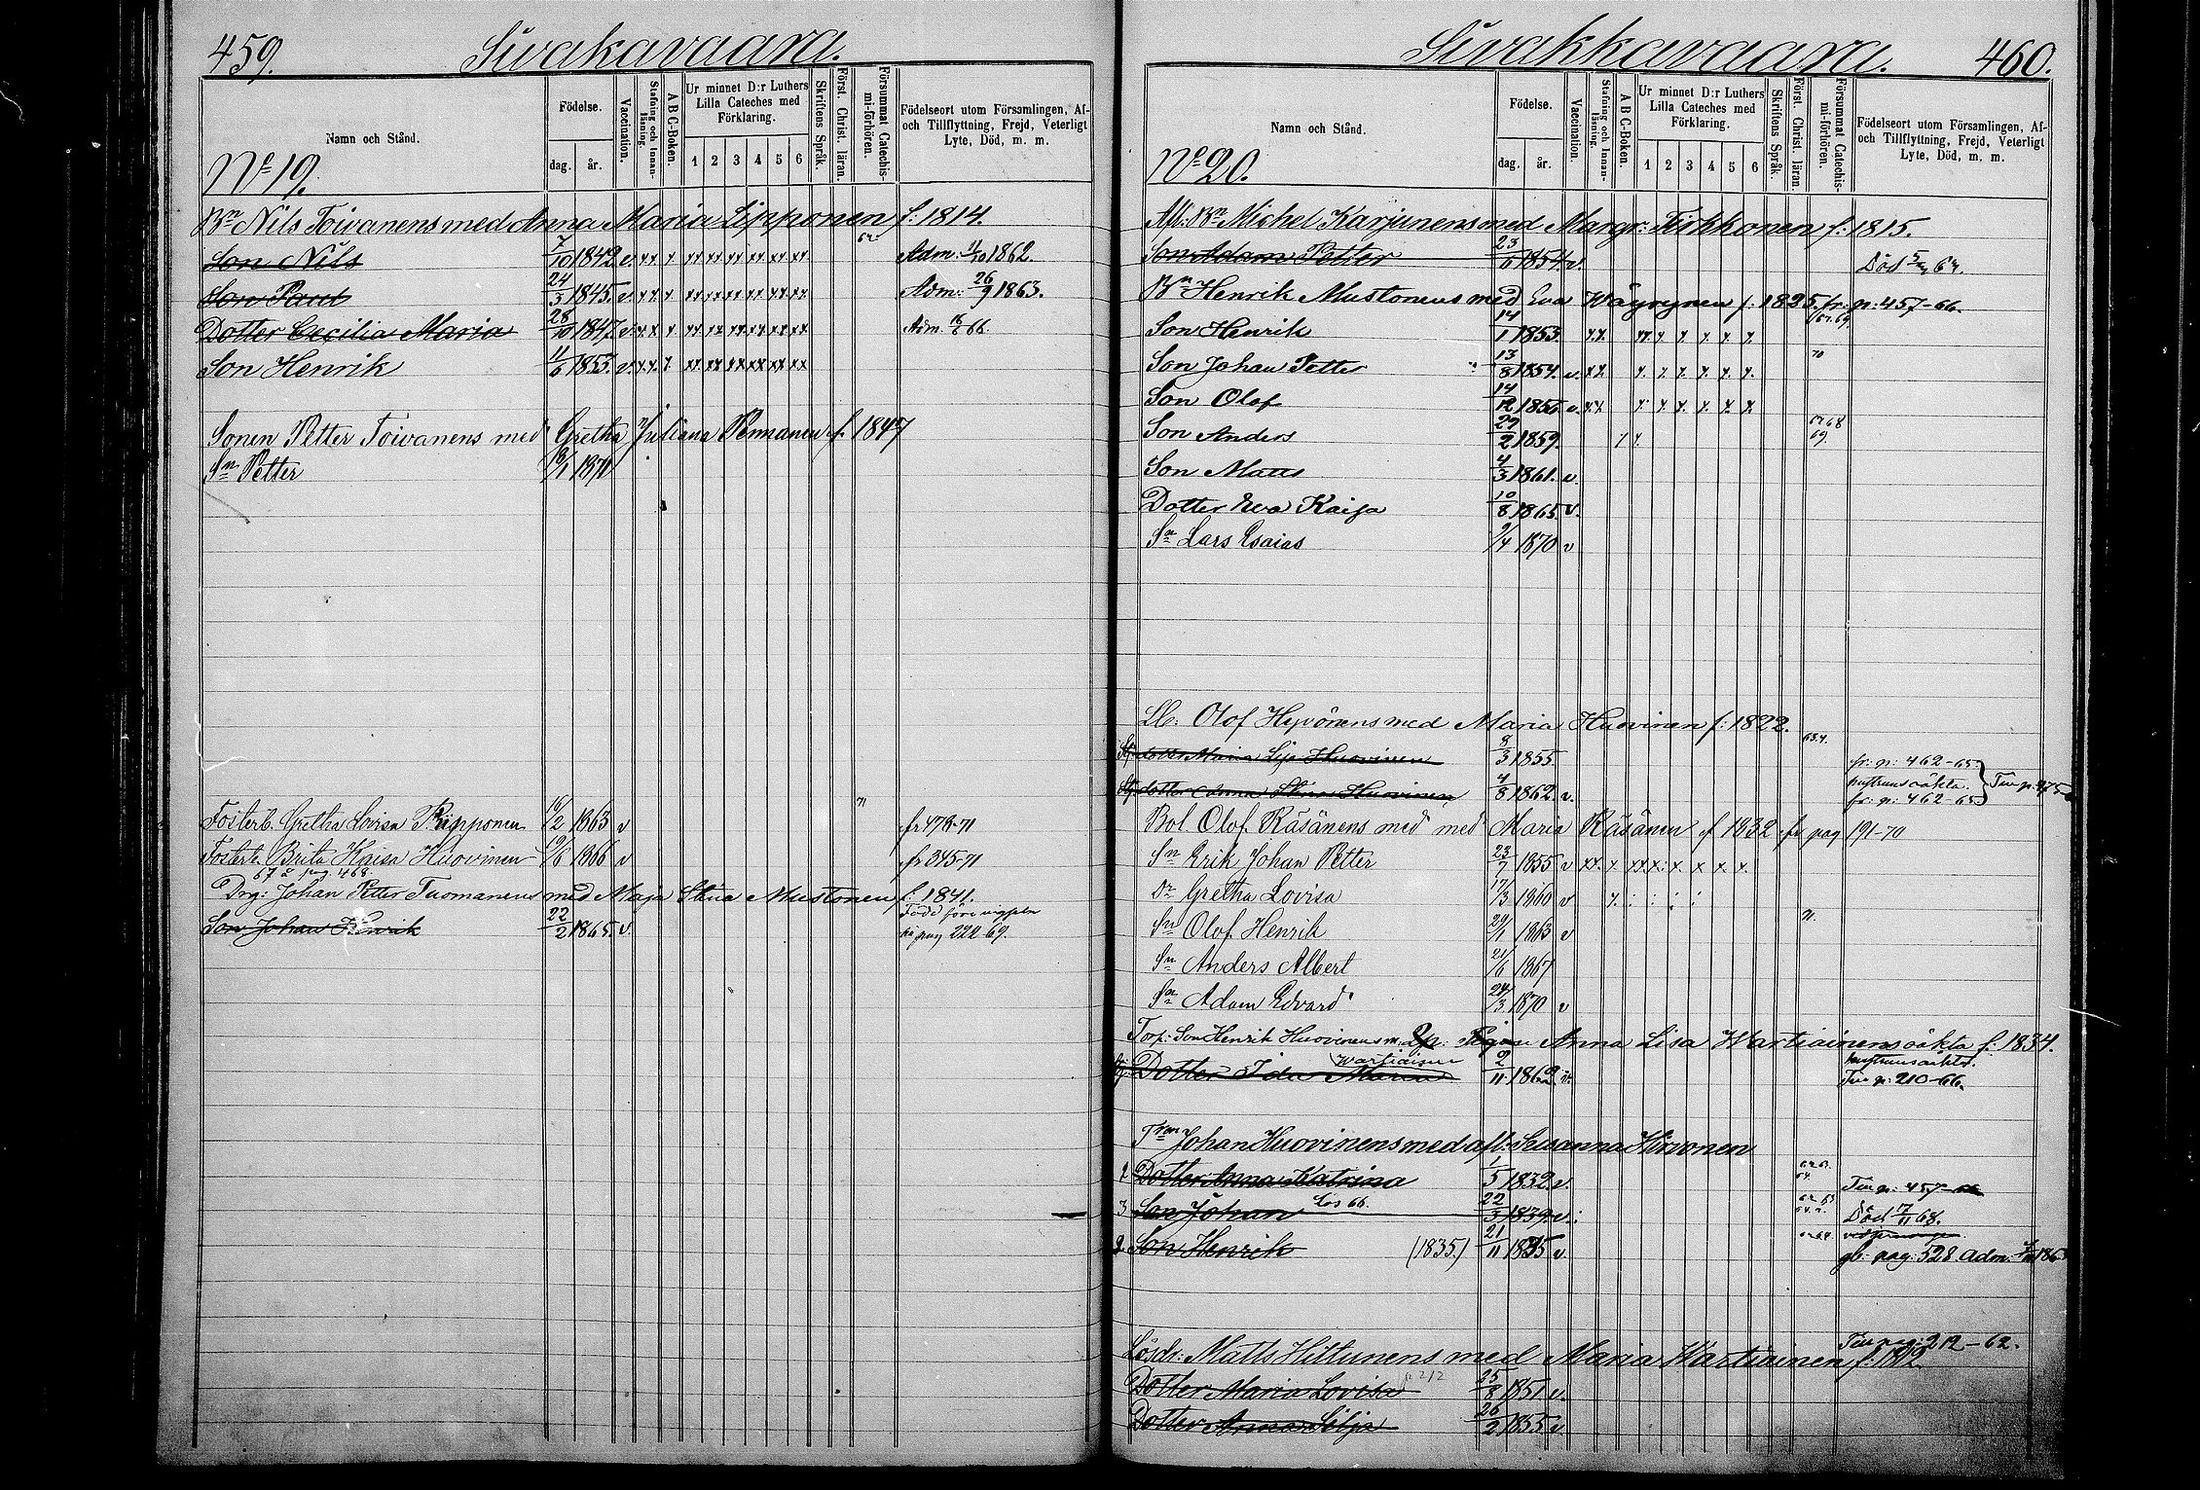 459. Sivakavaara.
Namn och Stånd.
Födelse.
dag. år.
Vaccination.
Stafning och Innanläsning.
A B C-Boken.
Ur minnet D:r Luthers Lilla Cateches med Förklaring.
1 2 3 4 5 6
Skriftens Språk.
Först. Christ. läran.
Försummat Catechismi-förhören.
Födelseort utom Församlingen, Af- och Tillflyttning, Frejd, Veterligt Lyte, Död, m. m.
No 19.
Bn Nils Toivanens med Anna Maria Lipponen f: 1814.
Son Nils 7/10 1842 v. Adm: 1862.
Son Paul 24/3 1845. v Adm: 26/9 1863.
Dotter Cecilia Maria 28/10 1847. v. Adm. 66.
Son Henrik 11/6 1853. v.
Sonen Petter Toivanens med Gretha Juliana Pennanen f. 1847
Sn Petter 1871
Fosterb. Gretha Lovisa 16/2 1863 v 71 fr 478-71
Fosterb. Brita Kaisa Huovinen 19/6 1866 v fr 395-71
67 å pag. 468.
Drg: Johan Petter Tuomanens med Maja Stina Mustonen f: 1841.
Född före
Son Johan Henrik 22/2 1865. v. pag 222-69.
Sivakkavaara. 460.
Namn och Stånd.
Födelse.
dag. år.
Vaccination.
Stafning och Innanläsning.
A B C-Boken.
Ur minnet D:r Luthers Lilla Cateches med Förklaring.
1 2 3 4 5 6
Skriftens Språk.
Först. Christ. läran.
Försummat Catechismi-förhören.
Födelseort utom Församlingen, Af- och Tillflyttning, Frejd, Veterligt Lyte, Död, m. m.
No 20.
Afl: Bn Michel Karjunens med Margr: Tirkkonen f: 1815.
Son Adam Petter 23/6 1854. v. Död
Bn Henrik Mustonens med Eva Wäyrynen f: 1825. fr: p: 457-66.
Son Henrik 14/1 1853. 67. 69.
Son Johan Petter 13/8 1854. v. 70
Son Olof 14/12 1856 v.
Son Anders 29/2 1859. 67 68 69.
Son Matts 4/3 1861. v.
Dotter Eva Kaisa 10/8 1865. v.
Sn Lars Esaias 9/4 1870 v
Olof Hyvönens med Maria Huovinen f: 1822.
dotter Maria Huovinen 8/3 1855 fr: p: 462-65.
dotter Anna Stina Huovinen 4/8 1862. v. fr: p: 462-65
Bol Olof Räsänens med med Maria Räsänen f 1832 fr pag 191-70
Sn Erik Johan Petter 23/7 1855 v
Dr Gretha Lovisa 17/3 1860 v
Sn Olof Henrik 29/1 1863 v 71.
Sn Anders Albert 21/6 1867
Sn Adam Edvard 24/3 1870 v
Torp: Son Henrik Huovinens m. Anna Lisa Wartiainens oäkta f: 1834.
Wartiainen
Dotter Ida Maria 2/11 1862 p: 210-66.
Johan Huovinens med afl: Susanna Hirvonen
2 Dotter Anna Katrina 1/5 1832. v. p: 457-66
3 Son Johan 22/3 1839. v. Död 17/11 68.
2 Son Henrik (1835.) 21/11 1835 v gl: pag: 528. Adm.
pag: 212-62.
Lösdr: Matts Hiltunens med Maria Wartiainen f: 1812
Dotter Maria Lovisa p 212 25/8 1851 v.
Dotter Anna Silja 26/2 1855 v